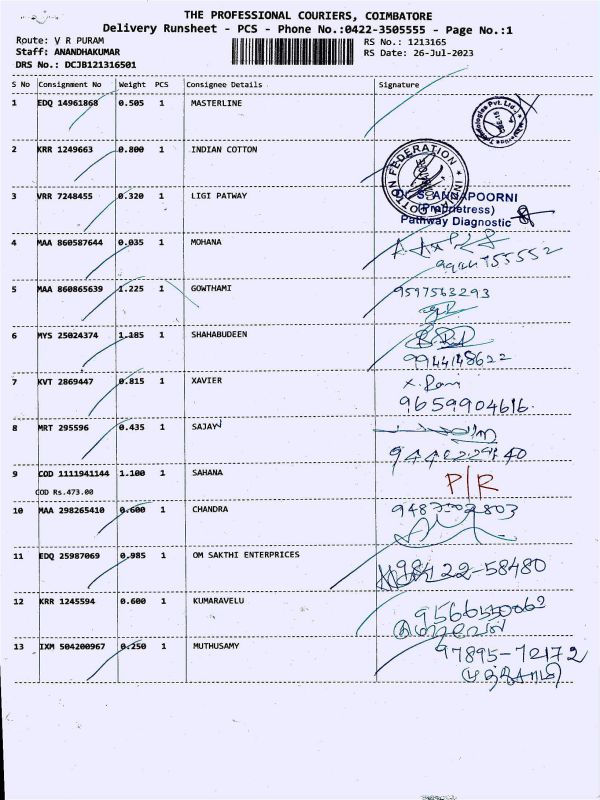 THE PROFESSIONAL COURIERS, COIMBATORE
Delivery Runsheet - PCS - Phone No.:0422-3505555 - Page No.:1
Route: V R PURAM RS No.: 1213165
Staff: ANANDHAKUMAR RS Date: 26-Jul-2023
DRS No.: DCJB121316501
S No Consignment No Weight PCS Consignee Details Signature
1 EDQ 14961868 0.505 1 MASTERLINE
2 KRR 1249663 0.800 1 INDIAN COTTON
FEDERATION
3 VRR 7248455 0.320 1 LIGI PATWAY
Dr. S. ANNAPOORNI
(Proprietress)
Pathway Diagnostic
4 MAA 860587644 0.035 1 MOHANA
5 MAA 860865639 1.225 1 GOWTHAMI 9597563293
6 MYS 25024374 1.185 1 SHAHABUDEEN
9944148622
7 KVT 2869447 0.815 1 XAVIER
9659904616.
8 MRT 295596 0.435 1 SAJAN
9 COD 1111941144 1.100 1 SAHANA P/R
COD Rs.473.00
10 MAA 298265410 0.600 1 CHANDRA
11 EDQ 25987069 0.985 1 OM SAKTHI ENTERPRICES
98422-58480
12 KRR 1245594 0.600 1 KUMARAVELU
13 IXM 504200967 0.250 1 MUTHUSAMY 97895-72172
முத்துசாமி